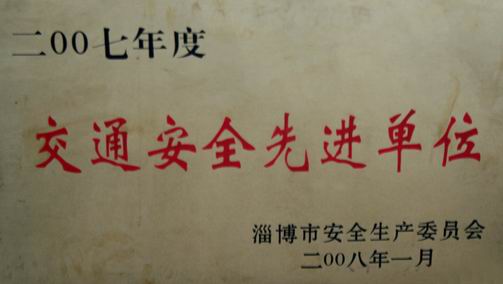 二00七年度
交通安全先进单位
淄博市安全生产委员会
二00八年一月